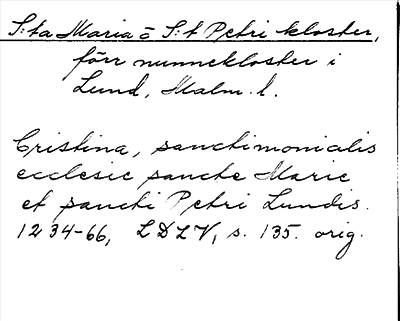 S:ta Maria o S:t Petri kloster,
förr nunnekloster i
Lund, Malm. l.
Cristina, sanctimonialis
ecclesie sancte Marie
et sancti Petri Lundis.
1234-66, LDLV, s. 135. orig.